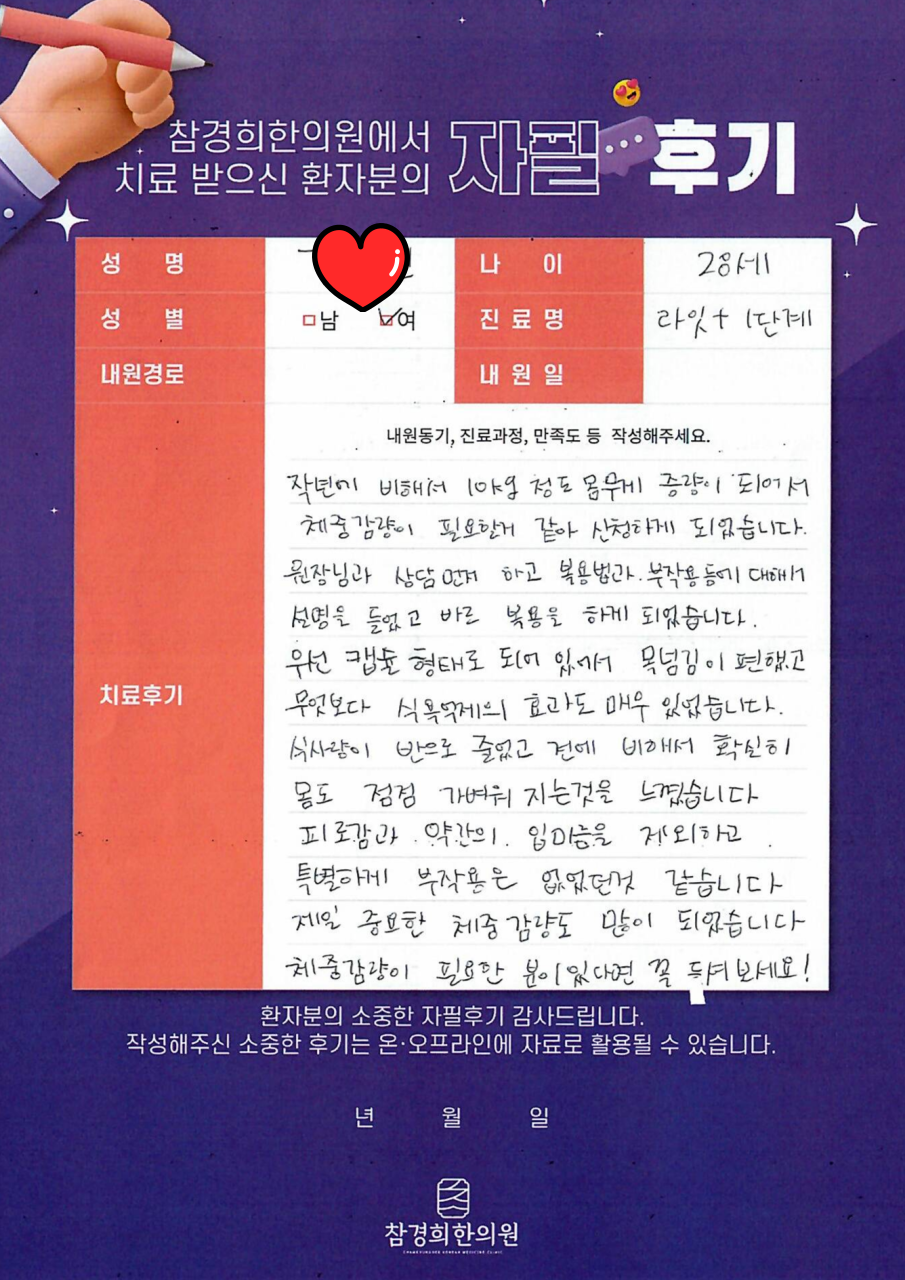 참경희한의원에서
치료 받으신 환자분의 자필 후기
성 명
나 이 28세
성 별 남 여
진료명 라잇+ 1단계
내원경로
내원일
내원동기, 진료과정, 만족도 등 작성해주세요.
치료후기
작년에 비해서 10kg 정도 몸무게 증량이 되어서
체중감량이 필요한거 같아 신청하게 되었습니다.
원장님과 상담 먼저 하고 복용법과 부작용등에 대해서
설명을 들었고 바로 복용을 하게 되었습니다.
우선 캡슐 형태로 되어 있어서 목넘김이 편했고
무엇보다 식욕억제의 효과도 매우 있었습니다.
식사량이 반으로 줄었고 전에 비해서 확실히
몸도 점점 가벼워 지는것을 느꼈습니다
피로감과 약간의 입마름을 제외하고
특별하게 부작용은 없었던것 같습니다
제일 중요한 체중감량도 많이 되었습니다
체중감량이 필요한 분이 있다면 꼭 드셔보세요!
환자분의 소중한 자필후기 감사드립니다.
작성해주신 소중한 후기는 온·오프라인에 자료로 활용될 수 있습니다.
년 월 일
참경희한의원